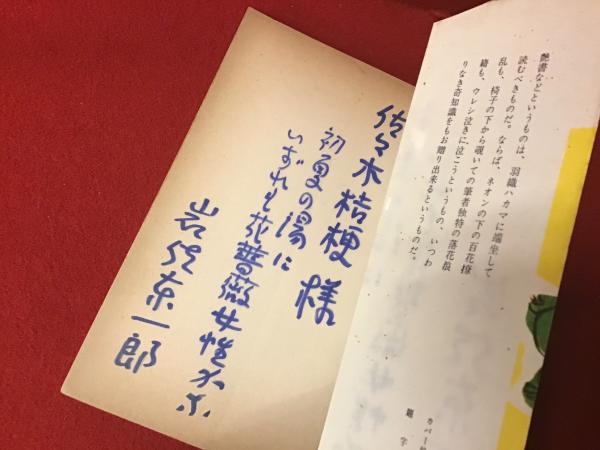 艶書などというものは、羽織ハカマに端坐して
読むべきものだ。ならば、ネオンの下の百花撩
乱も、椅子の下から覗いての筆者独特の落花狼
籍も、ウレシ泣きに泣こうというもの、いつわ
りなき奇知識をもお贈り出来るというものだ。
カバー
題字
佐々木桔梗様
初夏の湯に
いずれも花薔薇女性
岩佐東一郎